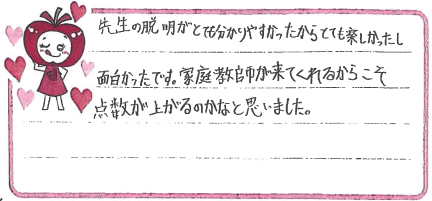 先生の脱明がとても分かりやすかったからとても楽しかったし
面白かったです。家庭教師が来てくれるからこそ
点数が上がるのかなと思いました。